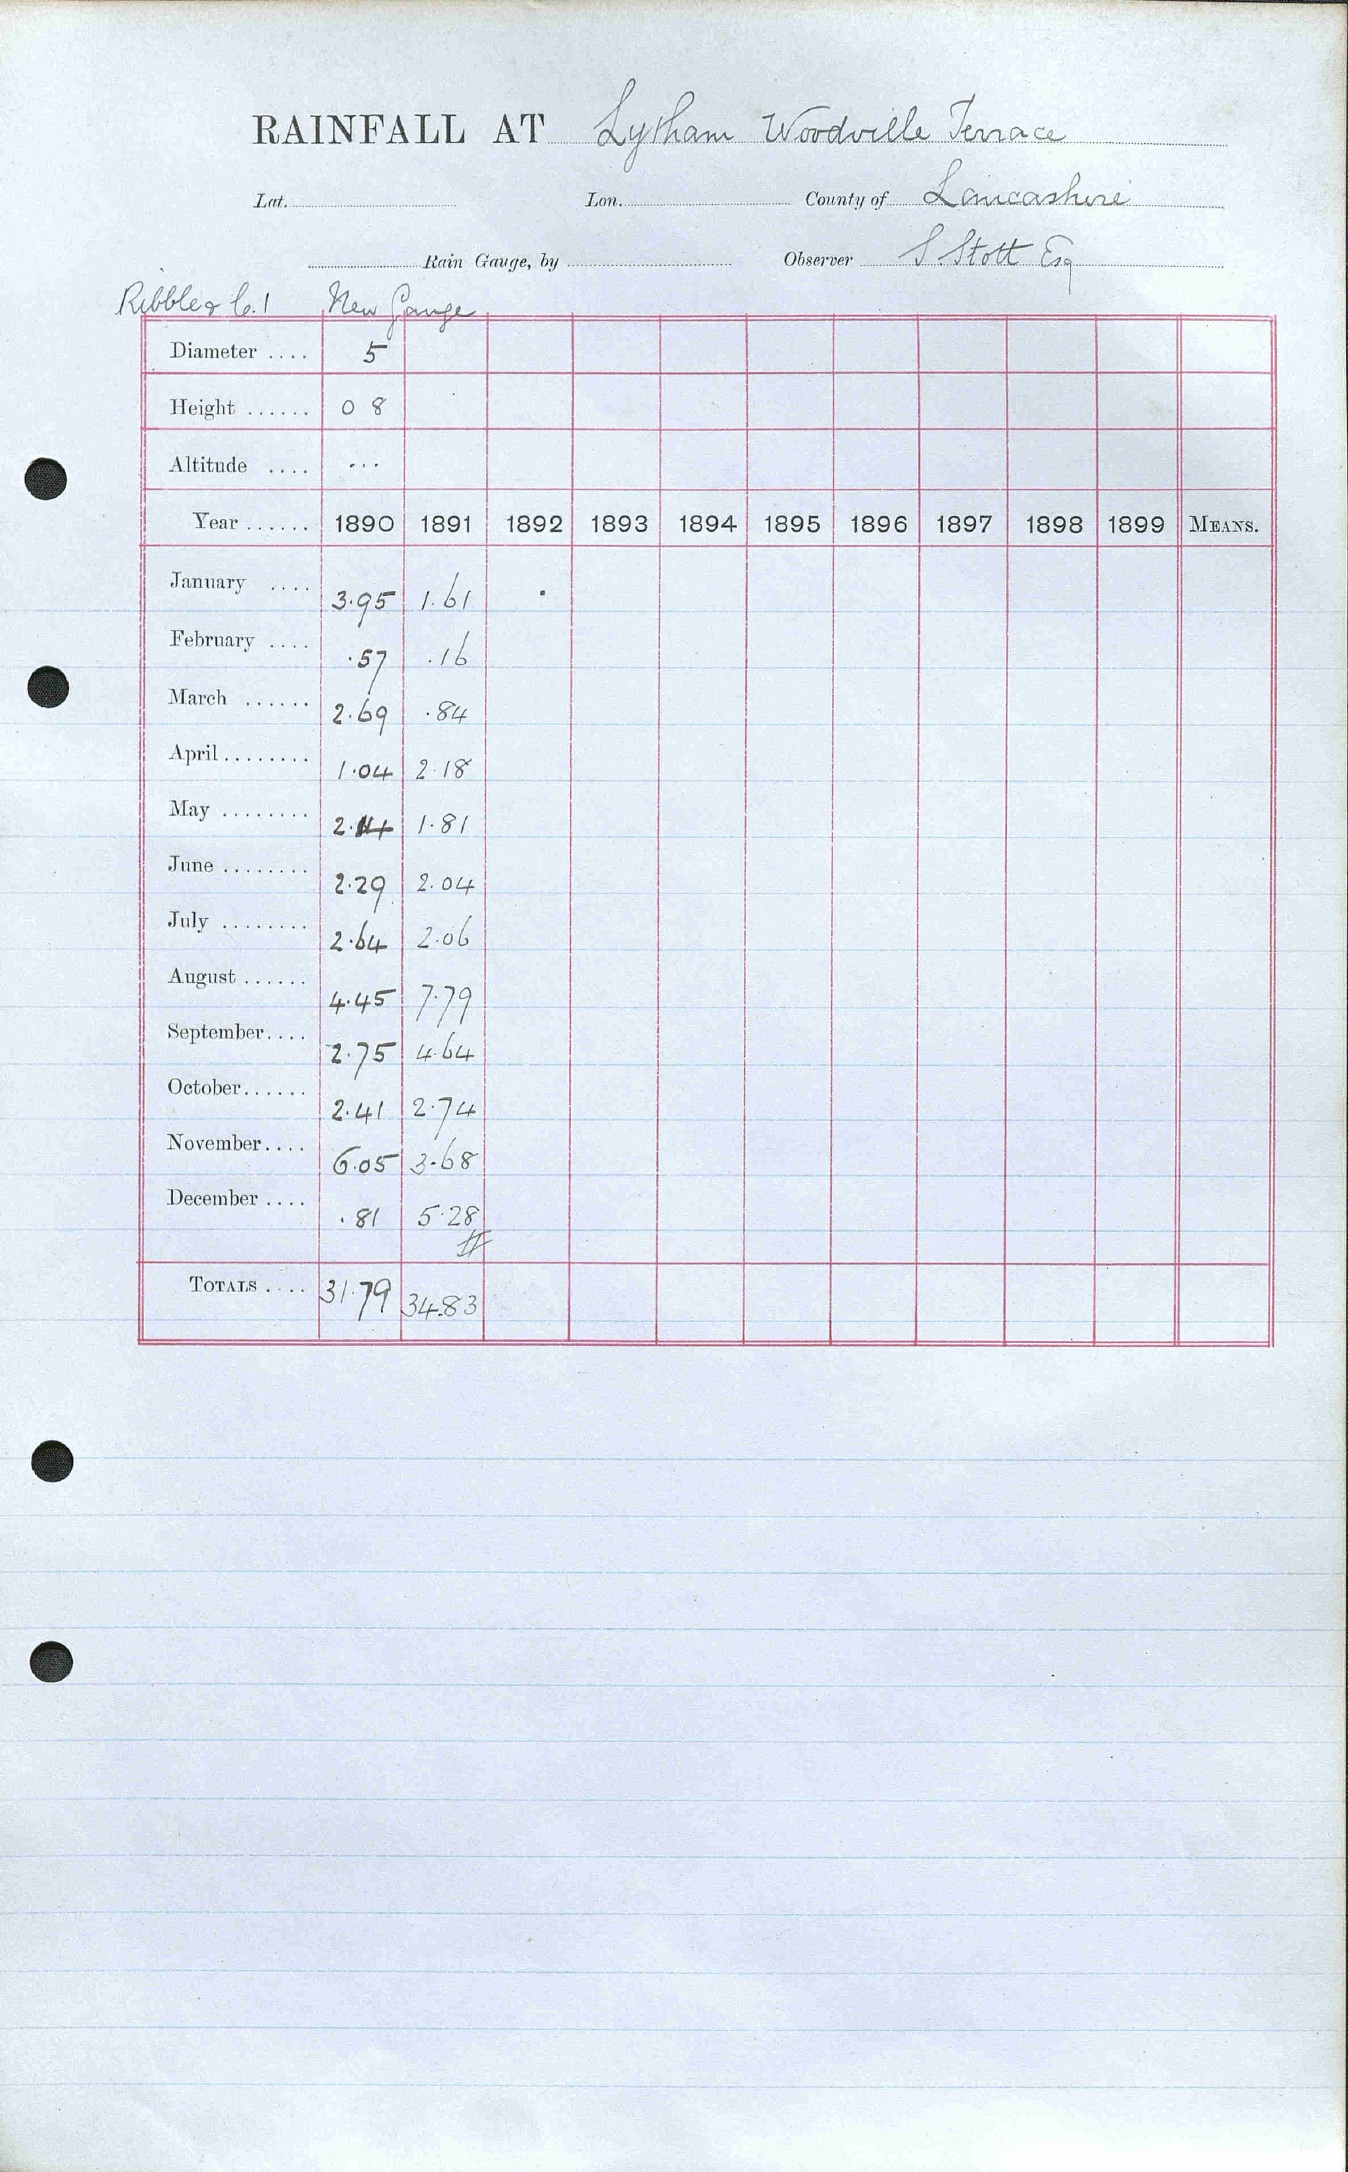 RAINFALL AT Lytham Woodville Terrace
Lat. Lon. County of Lancashire
Rain Gauge, by Observer S. Stott Esq
Ribble & C.1 New Gauge
Diameter .... 5
Height ...... 0 8
Altitude .... ...
Year ...... 1890 1891 1892 1893 1894 1895 1896 1897 1898 1899 MEANS.
January .... 3.95 1.61
February .... .57 .16
March ...... 2.69 .84
April ........ 1.04 2.18
May ........ 2.14 1.81
June ........ 2.29 2.04
July ........ 2.64 2.06
August ...... 4.45 7.79
September.... 2.75 4.64
October...... 2.41 2.74
November.... 6.05 3.68
December .... .81 5.28
TOTALS .... 31.79 34.83